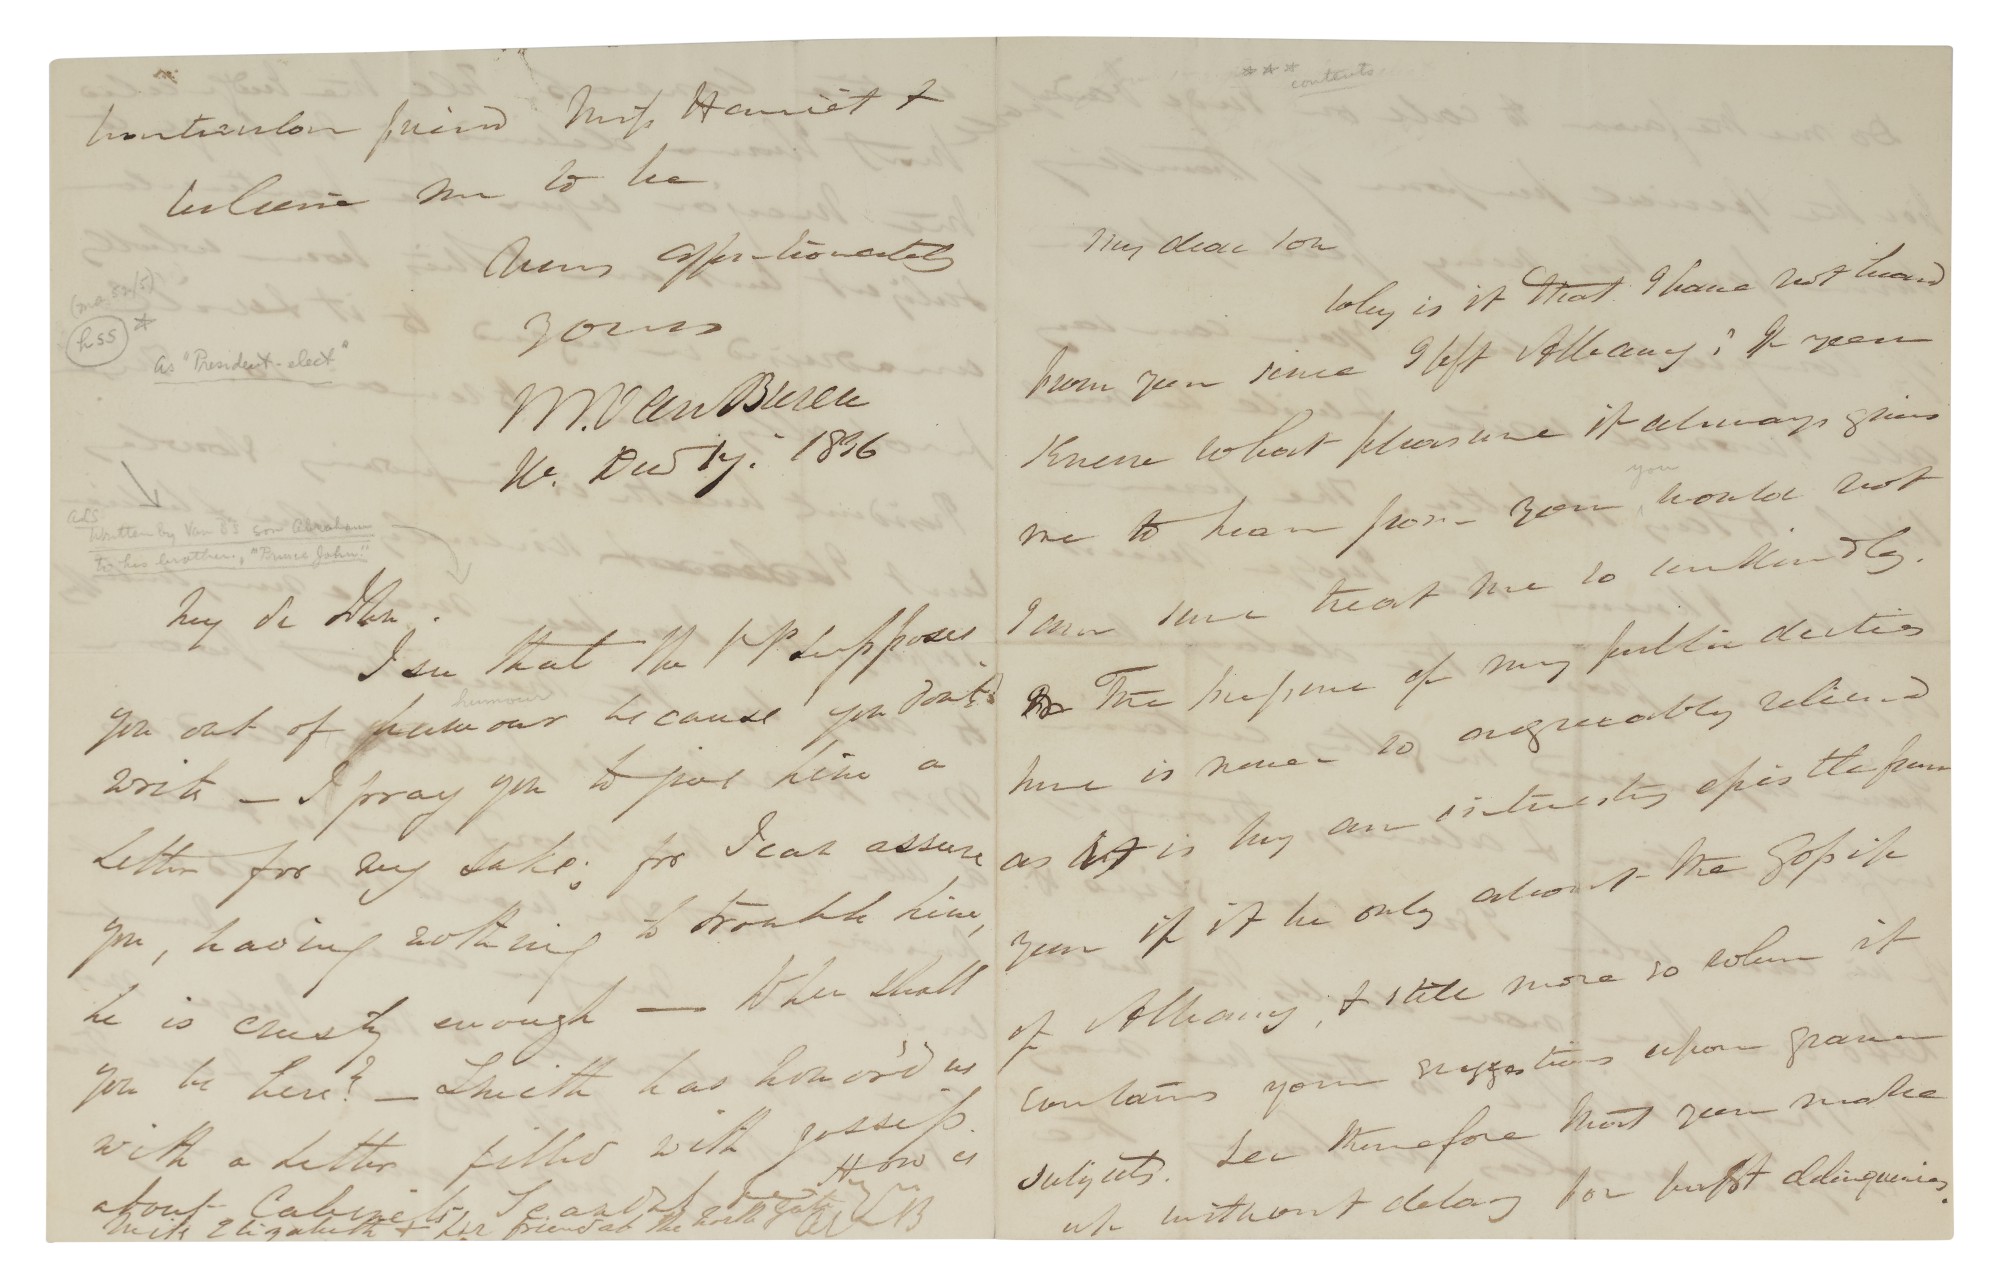 particular friend Miss Harriet &
believe me to be
Very affectionately
yours
M. Van Buren
W. Decr 17. 1836
(no. 52/5)
h55 *
as "President-elect"
ALS
written by Van B's son Abraham
to his brother, "Prince John."
My dr John.
I see that the VP supposes
you out of humour because you dont
humour
write — I pray you to give him a
letter for my sake; for I can assure
you, having nothing to trouble him,
he is crusty enough — When shall
you be here? — Smith has honor'd us
with a letter filled with gossip.
about Cabinets, Scandal
How is
Miss Elizabeth & her friend at the North
***
contents
My dear Son
Why is it that I have not heard
from you since I left Albany? If you
knew what pleasure it always gives
me to hear from you would not
you
I am sure treat me so unkindly.
The pressure of my public duties
here is never so agreeably relieved
as it is by an interesting epistle from
you if it be only about the Gossip
of Albany, & still more so when it
contains your suggestions upon graver
subjects. See therefore that you make
up without delay for past delinquencies.